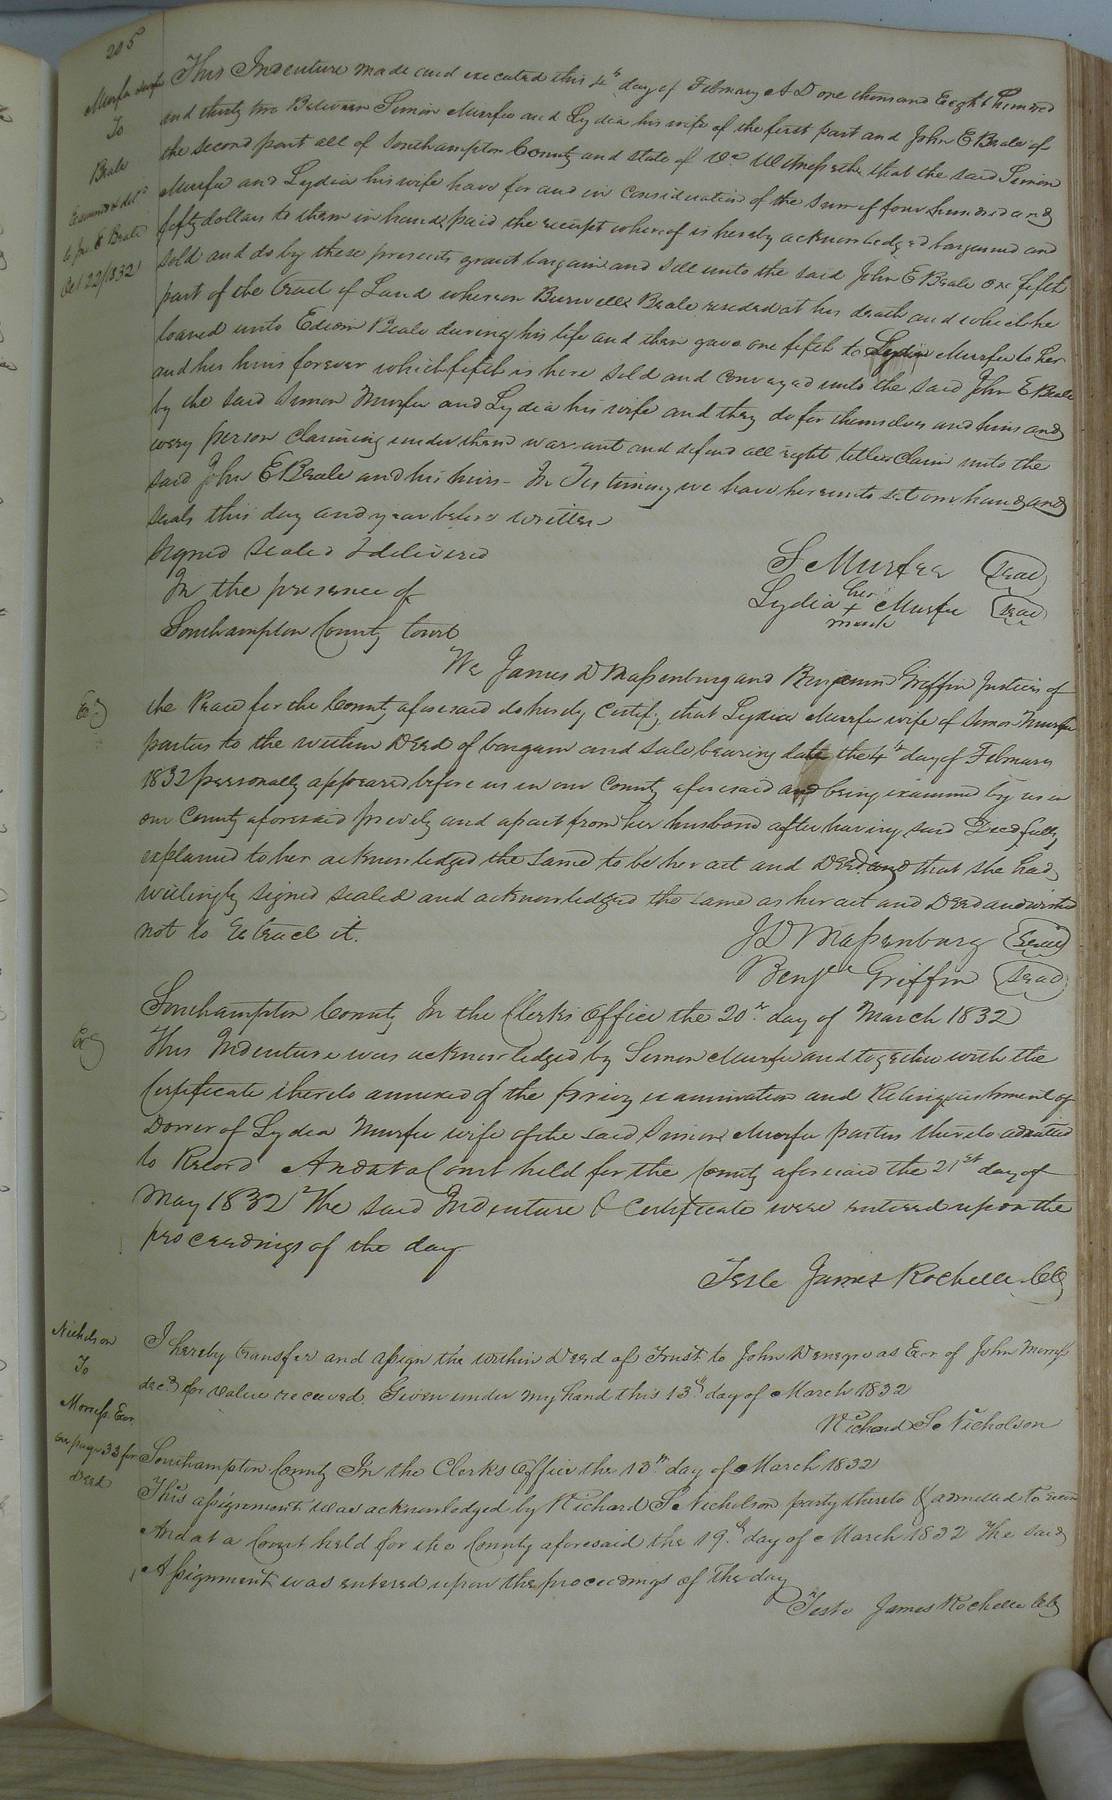 205
Murfee & wife
To
Beale
Examd & deld
to Jno E Beale
Oct 22/1832
This Indenture made and executed this 4th day of February A D one thousand Eight hundred
and thirty two Between Simon Murfee and Lydia his wife of the first part and John E Beale of
the second part all of Southampton County and state of Va Witnesseth that the said Simon
Murfee and Lydia his wife have for and in consideration of the sum of four hundred and
fifty dollars to them in hand paid the receipt whereof is hereby acknowledged bargained and
sold and do by these presents grant bargain and sell unto the said John E Beale one fifth
part of the tract of Land whereon Burwell Beale resided at his death and which he
loaned unto Edwin Beale during his life and then gave one fifth to Lydia Murfee to her
and her heirs forever which fifth is here sold and conveyed unto the said John E Beale
by the said Simon Murfee and Lydia his wife and they do for themselves and heirs and
every person claiming under them warrant and defend all right title & claim unto the
said John E Beale and his heirs - In Testimony we have hereunto set our hands and
seals this day and year before written
Signed sealed & delivered
In the presence of
Southampton County Court
S Murfee (seal)
Lydia her + mark Murfee (seal)
We James D Massenburg and Benjamin Griffin Justices of
the Peace for the County aforesaid do hereby Certify that Lydia Murfee wife of Simon Murfee
parties to the within Deed of bargain and sale bearing date the 4th day of February
1832 personally appeared before us in our County aforesaid and being examined by us in
our County aforesaid privily and apart from her husband after having said Deed fully
explained to her acknowledged the same to be her act and Deed and that she had
willingly signed sealed and acknowledged the same as her act and Deed and wished
not to retract it.
J D Massenburg (seal)
Benjn Griffin (seal)
Southampton County In the Clerks Office the 20th day of March 1832
This Indenture was acknowledged by Simon Murfee and together with the
Certificate thereto annexed of the privy examination and Relinquishment of
Dower of Lydia Murfee wife of the said Simon Murfee parties thereto admitted
to Record And at a Court held for the County aforesaid the 21st day of
May 1832 The said Indenture & Certificate were entered upon the
proceedings of the day
Teste James Rochelle CC
Nicholson
To
Morriss Exr
see page 33 for
deed
I hereby transfer and assign the within Deed of Trust to John Denegre as Exr of John Morriss
decd for value received. Given under my hand this 13th day of March 1832
Richard S Nicholson
Southampton County In the Clerks Office the 13th day of March 1832
This assignment was acknowledged by Richard S Nicholson party thereto & admitted to
And at a Court held for the County aforesaid the 19th day of March 1832 The said
Assignment was entered upon the proceedings of the day
Teste James Rochelle CC